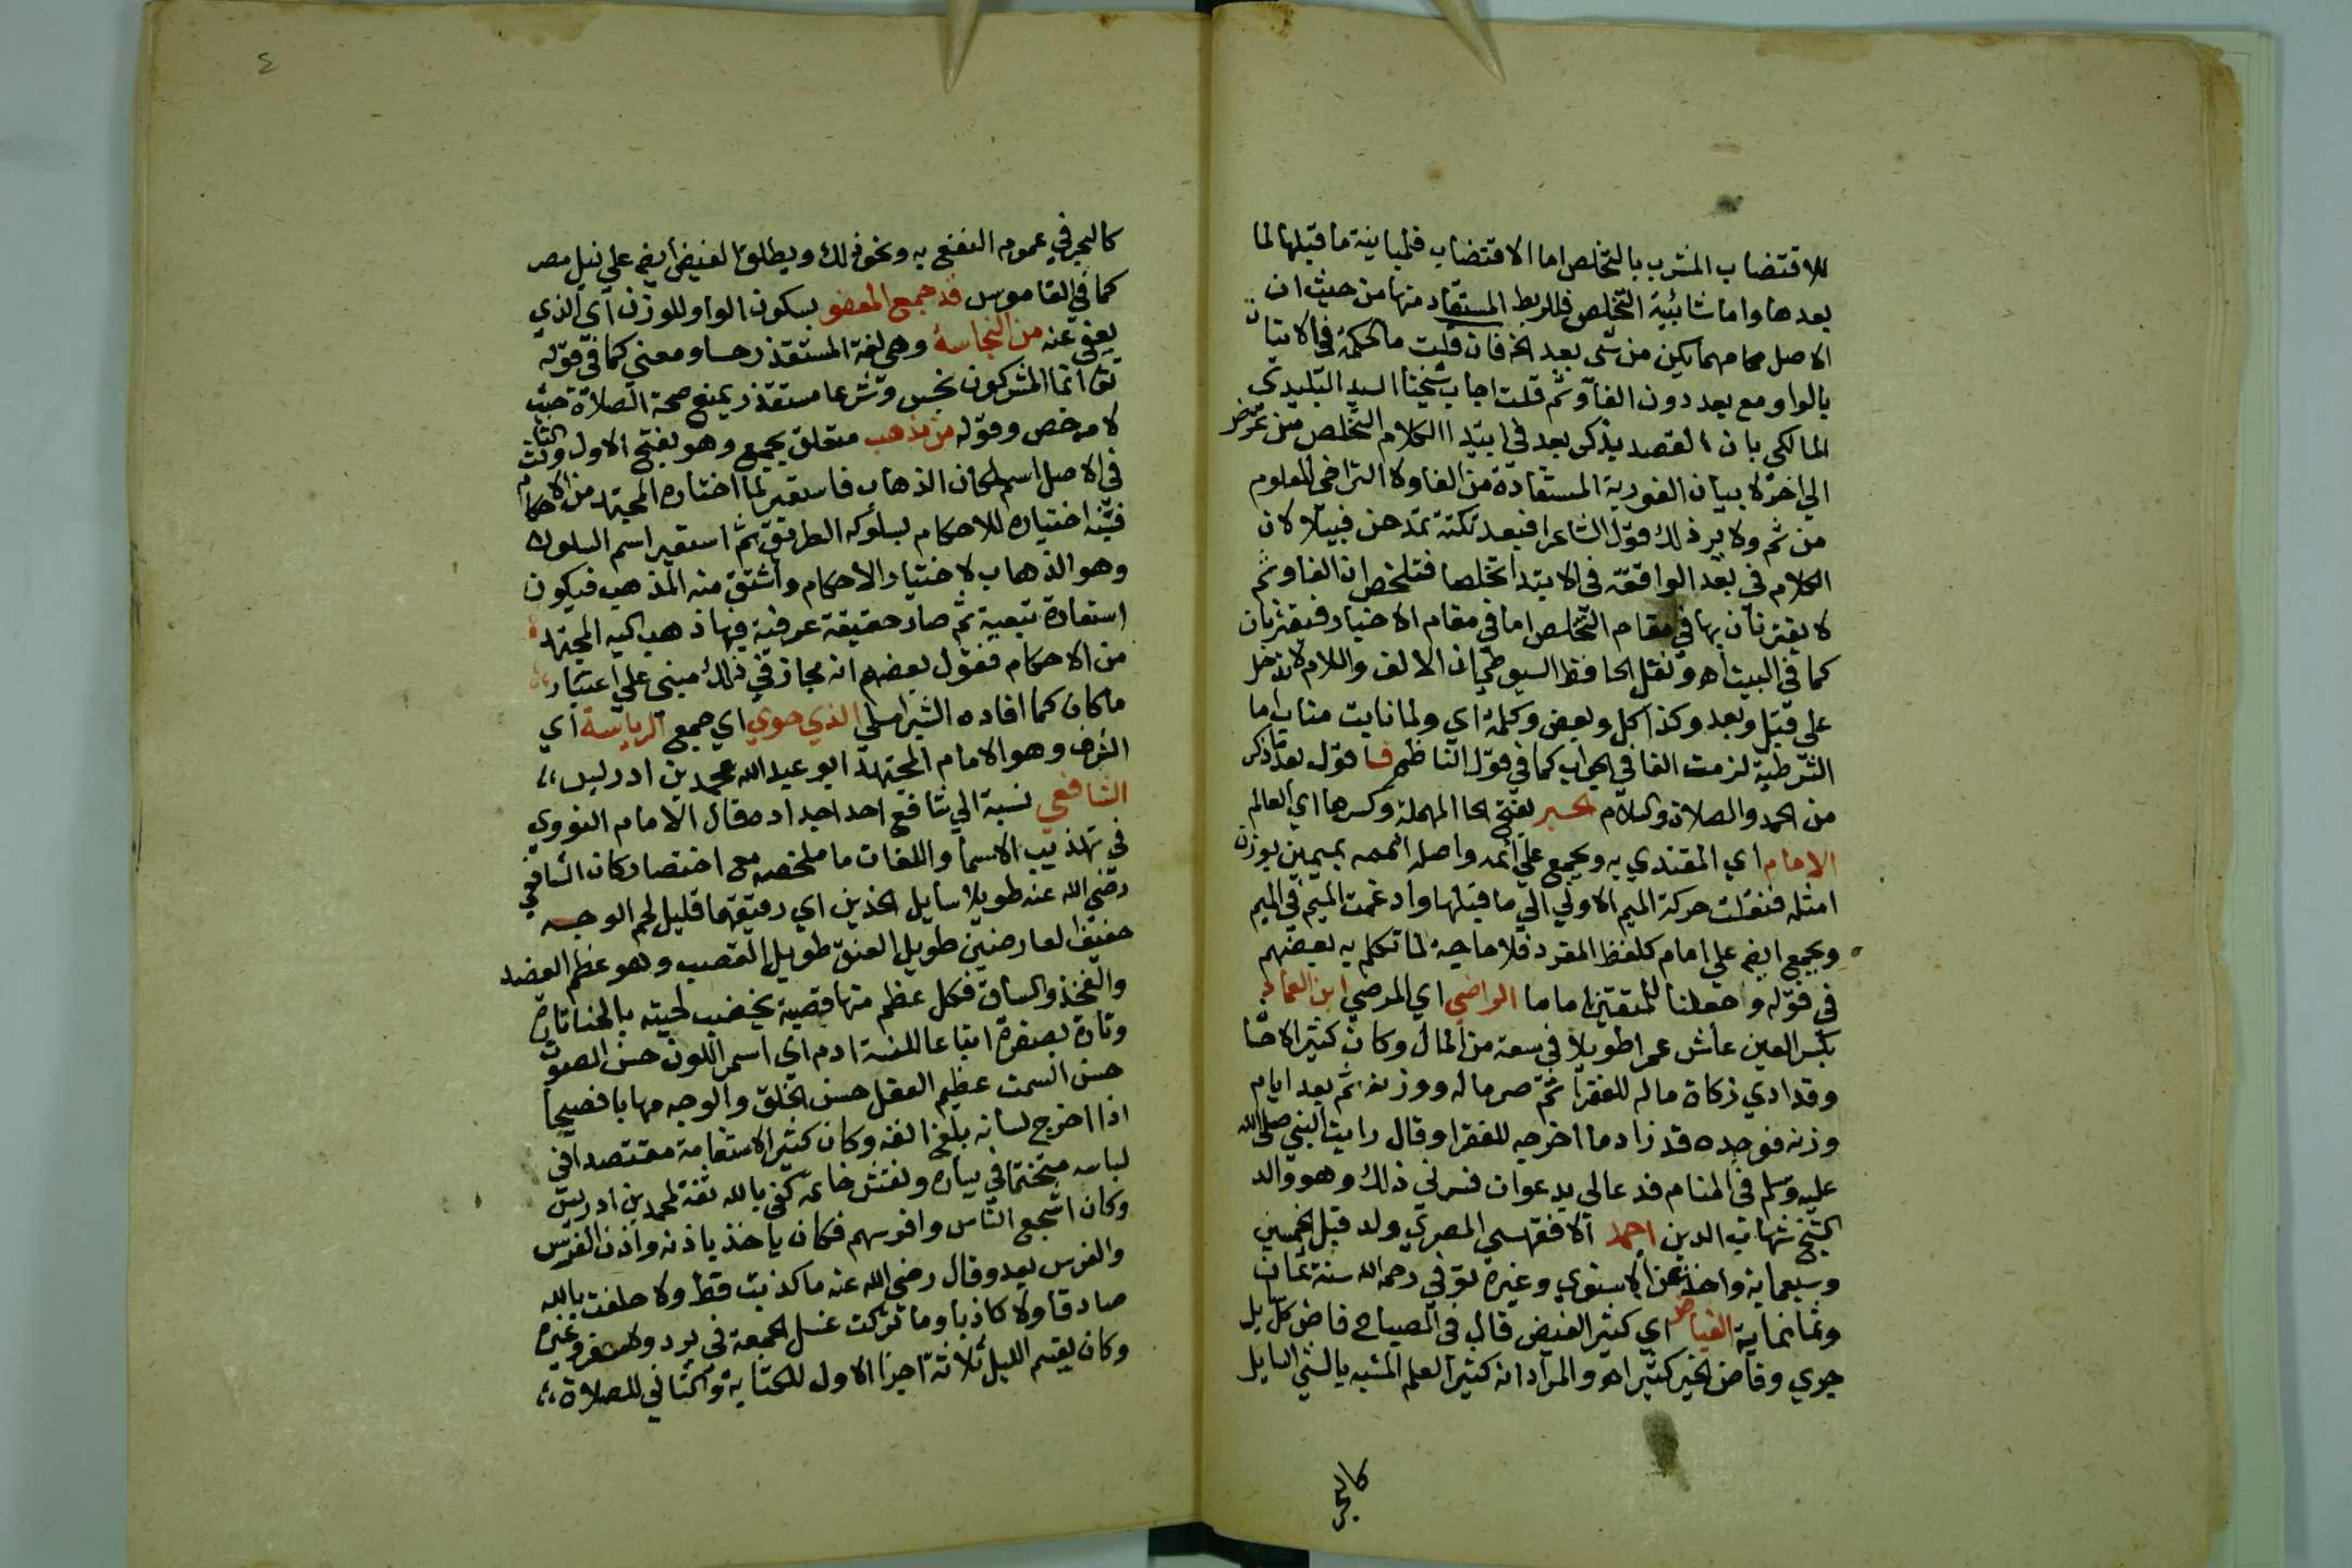 للاقتضاب المشرب بالتخلص اما الاقتضاب فلمباينة ما قبلها لما
بعدها واما شائبية التخلص فللربط المستفاد منها من حيث ان
الاصل مهما يكن من شي بعد الخ فان قلت ما الحكمة في الاتيان
بالواو مع بعد دون الفا وثم قلت اجاب شيخنا السيد البليدي
المالكي بان القصد بذكر بعد في ابتدا الكلام التخلص من غرض
الي اخر لا بيان الفورية المستفادة من الفا ولا التراخي المعلوم
من ثم ولا يرد ذلك قول الشاعر فبعد نكتة تمدحن قبيلا لان
الكلام في بعد الواقعة في الابتدا تخلصا فتلخص ان الفا وثم
لا يقترنان بها في مقام التخلص اما في مقام الاخبار فيقترنان
كما في البيت اه ونقل الحافظ السيوطي ان الالف واللام لا تدخل
علي قبل وبعد وكذا كل وبعض وكلمة اي ولما نابت مناب اما
الشرطية لزمت الفا في الجواب كما في قول الناظم فـاقول بعد ما ذكر
من الحمد والصلاة والسلام الحبر بفتح الحا المهملة وكسرها اي العالم
الامام اي المقتدي به ويجمع علي ائمه واصله اأممه بميمين بوزن
امثله فنقلت حركة الميم الاولي الي ما قبلها وادغمت الميم في الميم
ويجمع ايضا علي امام كلفظ المفرد فلا حاجة لما تكلم به بعضهم
في قوله واجعلنا للمتقين اماما الراضي اي المرضي ابن العماد
بكسر العين عاش عمرا طويلا في سعة من المال وكان كثير الاحسا
وقد ادي زكاة ماله للفقرا ثم صر ماله ووزنه ثم بعد ايام
وزنه فوجده قد زاد ما اخرجه للفقرا وقال رايت النبي صلي الله
عليه وسلم في المنام فدعا لي بدعوات فسرني ذلك وهو والد
الشيخ شهاب الدين احمد الاقفهسي المصري ولد قبل الخمسين
وسبعماية واخذ عن الاسنوي وغيره توفي رحمه الله سنة ثمان
وثمانماية الفياض اي كثير الفيض قال في المصباح فاض كل سايل
جري وفاض الخير كثر اه والمراد انه كثير العلم المشبه بالشي السايل
كالبحر
٤
كالبحر في عموم النفع به ونحو ذلك ويطلق الفيض ايضا علي نيل مصر
كما في القاموس قد جمع المعفو بسكون الواو للوزن اي الذي
يعفي عنه من النجاسة وهي لغة المستقذر حسا ومعني كما في قوله
تعا انما المشركون نجس وشرعا مستقذر يمنع صحة الصلاة حيث
لا مرخص وقوله من مذهب متعلق بجمع وهو بفتح الاول والثالث
في الاصل اسم لمكان الذهاب فاستعير لما اختاره المجتهد من الاحكام
فشبه اختياره للاحكام بسلوكه الطريق ثم استعير اسم السلوك
وهو الذهاب لاختيار الاحكام واشتق منه المذهب فيكون
استعارة تبعية ثم صار حقيقة عرفية فيما ذهب اليه المجتهد
من الاحكام فقول بعضهم انه مجاز في ذلك مبني علي اعتبار
ما كان كما افاده الشبراملسي الذي حوي اي جمع الرياسة اي
الشرف وهو الامام المجتهد ابو عبد الله محمد بن ادريس
الشافعي نسبة الي شافع احد اجداده قال الامام النووي
في تهذيب الاسما واللغات ما ملخصه مع اختصار كان الشافعي
رضي الله عنه طويلا سايل الخدين اي رقيقهما قليل لحم الوجه
خفيف العارضين طويل العنق طويل القصب وهو عظم العضد
والفخذ والساق فكل عظم منها قصبة يخضب لحيته بالحنا تارة
وتارة بصفرة اتباعا للسنة ادم اي اسمر اللون حسن الصوت
حسن السمت عظيم العقل حسن الخلق والوجه مهابا فصيحا
اذا اخرج لسانه بلغ انفه وكان كثير الاستقامة مقتصدا في
لباسه متختما في يساره ونقش خاتمه كفي بالله ثقة لمحمد بن ادريس
وكان اشجع الناس وافرسهم فكان ياخذ باذنه واذن الفرس
والفرس يعدو وقال رضي الله عنه ما كذبت قط ولا حلفت بالله
صادقا ولا كاذبا وما تركت غسل الجمعة في برد ولا سفر وغيره
وكان يقسم الليل ثلاثة اجزا الاول للكتابة والثاني للصلاة